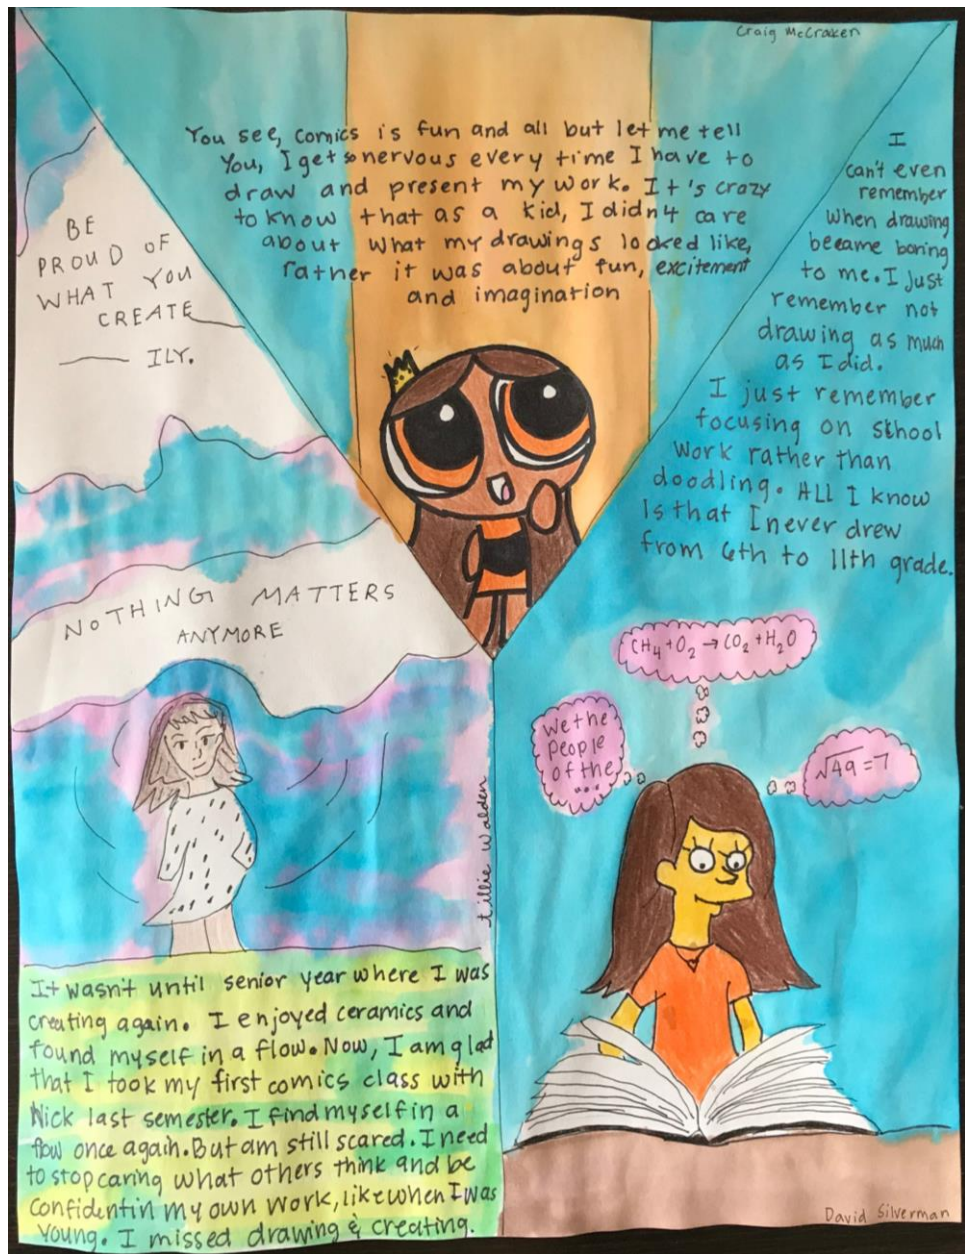 Craig McCraken
You see, comics is fun and all but let me tell
You, I get so nervous every time I have to
draw and present my work. It's crazy
to know that as a kid, I didn't care
about what my drawings looked like,
rather it was about fun, excitement
and imagination
I
can't even
remember
When drawing
became boring
to me. I just
remember not
drawing as much
as I did.
I just remember
focusing on school
Work rather than
doodling. ALL I know
Is that I never drew
from 6th to 11th grade.
CH4+O2→CO2+H2O
We the
People
of the
...
√49=7
David Silverman
BE
PROUD OF
WHAT YOU
CREATE
ILY.
NOTHING MATTERS
ANYMORE
tillie Walden
It wasn't until senior year where I was
Creating again. I enjoyed ceramics and
found myself in a flow. Now, I am glad
that I took my first comics class with
Nick last semester. I find myself in a
flow once again. But am still scared. I need
to stop caring what others think and be
Confident in my own work, like when I was
Young. I missed drawing & creating.